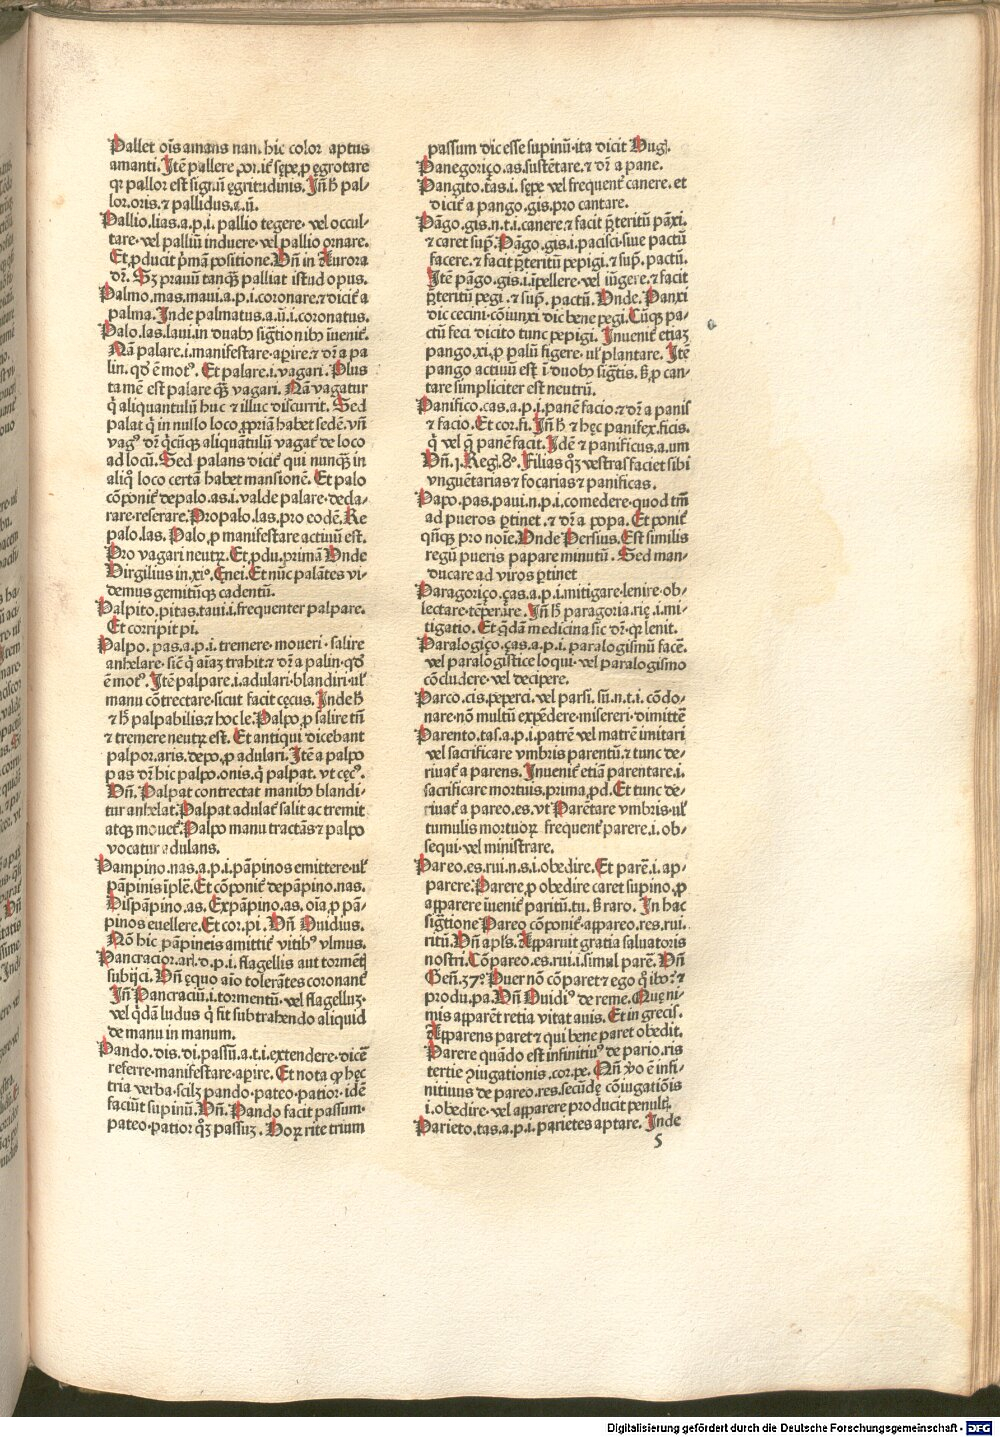 Pallet oīs amans nan. hic color aptus
amanti. Itē pallere ꝓr. itē sępe ꝓ ęgrotare
qꝛ pallor est signū ęgritudinis. Iñ h̄ pal-
lor.oris.⁊ pallidus.a.ū.
Pallio.lias.a.p.i. pallio tegere· vel occul-
tare· vel palliū induere· vel pallio ornare.
Et ꝓducit p̄mam positione. Vñ in Aurora
dꝛ̄. Sꝫ prauū tanqꝫ palliat istud opus.
Palmo.mas.maui.a.p.i. coronare.⁊ dicit̄ a
palma. Inde palmatus.a.ū.i. coronatus.
Palo.las.laui. in duabꝰ sigtionibꝰ īuenit̄.
Nā palare.i.manifestare·apire.⁊ dꝛ̄ a pa
lin. qđ ē motꝰ. Et palare.i.vagari. Plus
tamē est palare qꝫ vagari. Nā vagatur
q̄ aliquantulū huc ⁊ illuc discurrit. Sed
palat q̄ in nullo loco ꝓpriā habet sedē. vñ
vagꝰ dꝛ̄ q̄cūqꝫ aliquātulū vagat̄ de loco
ad locū. Sed palans dicit̄ qui nunqꝫ in
aliq̄ loco certā habet mansionē. Et palo
cōponit̄ depalo.as.i. valde palare·decla-
rare·reserare. Propalo.las. pro eodē. Re
palo.las. Palo ꝓ manifestare actiuū est.
Pro vagari neutꝝ. Et ꝓdu. primā Vnde
Virgilius in.xiº. Ęnei. Et nūc palātes vi-
demus gemitūqꝫ cadentū.
Palpito.pitas.taui.i. frequenter palpare.
Et corripit pi.
Palpo.pas.a.p.i. tremere· moueri· salire
anhelare· sic̄ q̄ aīaꝫ trahit.⁊ dꝛ̄ a palin.qđ
ē motꝰ. Itē palpare.i.adulari·blandiri·ul̄
manu cōtrectare·sicut facit cęcus. Inde h̄
⁊ h̄ palpabilis.⁊ hoc le. Palpo ꝓ salire tm̄
⁊ tremere neutꝝ est. Et antiqui dicebant
palpor.aris. depo. ꝓ adulari. Itē a palpo
pas dꝛ̄ hic palpo.onis. q̄ palpat. vt cęcꝰ.
Vñ. Palpat contrectat manibꝰ blandi-
tur anhelat. Palpat adulat̄ salit ac tremit
atqꝫ mouet̄. Palpo manu tractās ⁊ palpo
vocatur adulans.
Pampino.nas.a.p.i. pāpinos emittere·ul̄
pāpinis īplē. Et cōponit̄ depāpino.nas.
Dispāpino.as. Expāpino.as. oīa ꝓ pā-
pinos euellere. Et cor. pi. Vñ Ouidius.
Nō hic pāpineis amittit̄ vitibꝰ vlmus.
Pancracior.ari. d.p.i. flagellis aut tormētꝭ
subijci. Vñ ęquo aīo tolerātes coronant̄
Iñ Pancraciū.i. tormentū· vel flagelluꝫ·
vel q̄dā ludus q̄ fit subtrahendo aliquid
de manu in manum.
Pando.dis.di.passū.a.t.i.extendere·dicē
referre·manifestare·apire. Et nota ꝙ hęc
tria verba·scilꝫ pando·pateo·patior·idē
faciūt supinū. Vñ. Pando facit passum·
pateo·patior qꝫ passuꝫ. Hoꝝ rite trium
passum dic esse supinū·ita dicit Hug̃.
Panegoriço.as.sustētare.⁊ dꝛ̄ a pane.
Pangito.tas.i. sępe vel frequent̄ canere. et
dicit̄ a pango.gis.pro cantare.
Pāgo.gis.n.t.i.canere.⁊ facit p̄teritū pāxi.
⁊ caret sup̄. Pāgo.gis.i.pacisci·siue pactū
facere.⁊ facit p̄teritū pepigi.⁊ sup̄. pactū.
Itē pāgo.gis.i.īpellere· vel iūgere.⁊ facit
p̄teritū pegi.⁊ sup̄. pactū. Vnde. Panxi
dic cecini·cōiunxi dic bene pegi. Cūqꝫ pa-
ctū feci dicito tunc pepigi. Inuenit̄ etiaꝫ
pango.xi. ꝓ palū figere· ul̄ plantare. Itē
pango actiuū est ī duobꝰ sigtis. ß ꝓ can-
tare simpliciter est neutrū.
Panifico.cas.a.p.i.panē facio.⁊ dꝛ̄ a panis
⁊ facio. Et cor. fi. Iñ h̄ ⁊ hęc panifex.ficis.
q̄ vel q̄ panē facit. Idē ⁊ panificus.a.um
Vñ.ı. Reg̃. 8º. Filias qꝫ vestras faciet sibi
vnguētarias ⁊ focarias ⁊ panificas.
Papo.pas.paui.n.p.i.comedere·quod tm̄
ad pueros ꝑtinet.⁊ dꝛ̄ a popa. Et ponit̄
qn̄qꝫ pro noīe. Vnde Persius. Est similis
regū pueris papare minutū. Sed man-
ducare ad viros ꝑtinet
Paragoriço.ças.a.p.i.mitigare·lenire·ob-
lectare·tēperare. Iñ h̄ paragoria.rię.i.mi-
tigatio. Et q̄dā medicina sic dꝛ̄. qꝛ lenit.
Paralogiço.ças.a.p.i. paralogismū facē.
vel paralogistice loqui· vel paralogismo
cōcludere· vel decipere.
Parco.cis.peperci. vel parsi. sū.n.t.i. cōdo-
nare·nō multū expēdere·misereri·dimittē
Parento.tas.a.p.i. patrē vel matrē imitari
vel sacrificare vmbris parentū.⁊ tunc de-
riuat̄ a parens. Inuenit̄ etiā parentare.i.
sacrificare mortuis. prima ꝓd. Et tunc de-
riuat̄ a pareo.es. vt Parētare vmbris·ul̄
tumulis mortuoꝝ frequent̄ parere.i. ob-
sequi· vel ministrare.
Pareo.es.rui.n.s.i.obedire. Et parē.i. ap-
parere. Parere ꝓ obedire caret supino. ꝓ
apparere iuenit̄ paritū.tu. ß raro. In hac
sigtione Pareo cōponit̄·appareo.es.rui.
ritū. Vñ apl̄s. Apparuit gratia saluatoris
nostri. Cōpareo.es.rui.i.simul parē. Vñ
Geñ.37º. Puer nō cōparet ⁊ ego q̄ ibo.⁊
produ. pa. Vñ Ouidiꝰ de reme. Quę ni-
mis apparēt retia vitat auis. Et in grecis.
Apparens paret ⁊ qui bene paret obedit.
Parere quādo est infinitiuꝰ de pario.ris
tertie ꝯiugationis.cor.pe. Qñ vᵒ ē infi-
nitiuus de pareo.res.secūdę cōiugatiōis
i.obedire· vel apparere producit penultꝭ.
Parieto.tas.a.p.i. parietes aptare. Inde
s
Digitalisierung gefördert durch die Deutsche Forschungsgemeinschaft · DFG